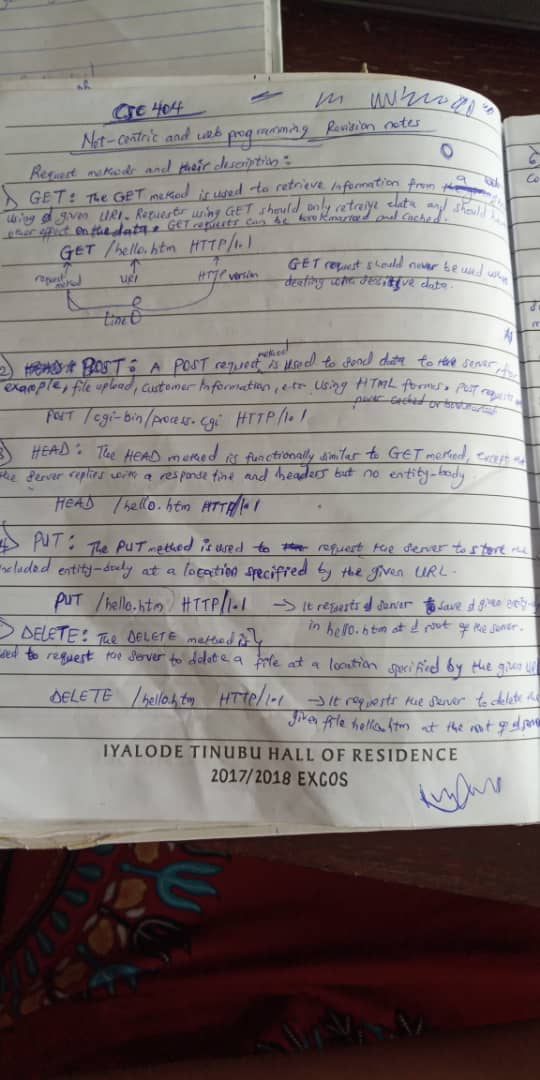 CSC 404
Net-centric and web programming Revision notes
Request methods and their description:
1) GET: The GET method is used to retrieve information from a
using d given URI. Requests using GET should only retreive data and should
other effect on the data. GET requests can be bookmarked and cached.
GET /hello.htm HTTP/1.1
request method URI HTTP version
GET request should never be used when
dealing with sensitive data.
Line
2) POST: A POST request method is used to send data to the server, for
example, file upload, customer information, etc using HTML forms. POST requests
never cached or bookmarked
POST /cgi-bin/process.cgi HTTP/1.1
3 HEAD: The HEAD method is functionally similar to GET method, except
the server replies with a response line and headers but no entity-body
HEAD /hello.htm HTTP/1.1
4) PUT: The PUT method is used to request the server to store the
included entity-body at a location specified by the given URL.
PUT /hello.htm HTTP/1.1 → It requests d server to save d given entity-
in hello.htm at d root of the server.
) DELETE: The DELETE method is
used to request the server to delete a file at a location specified by the given
DELETE /hello.htm HTTP/1.1 → It requests the server to delete the
given file hello.htm at the root of d server
IYALODE TINUBU HALL OF RESIDENCE
2017/2018 EXCOS